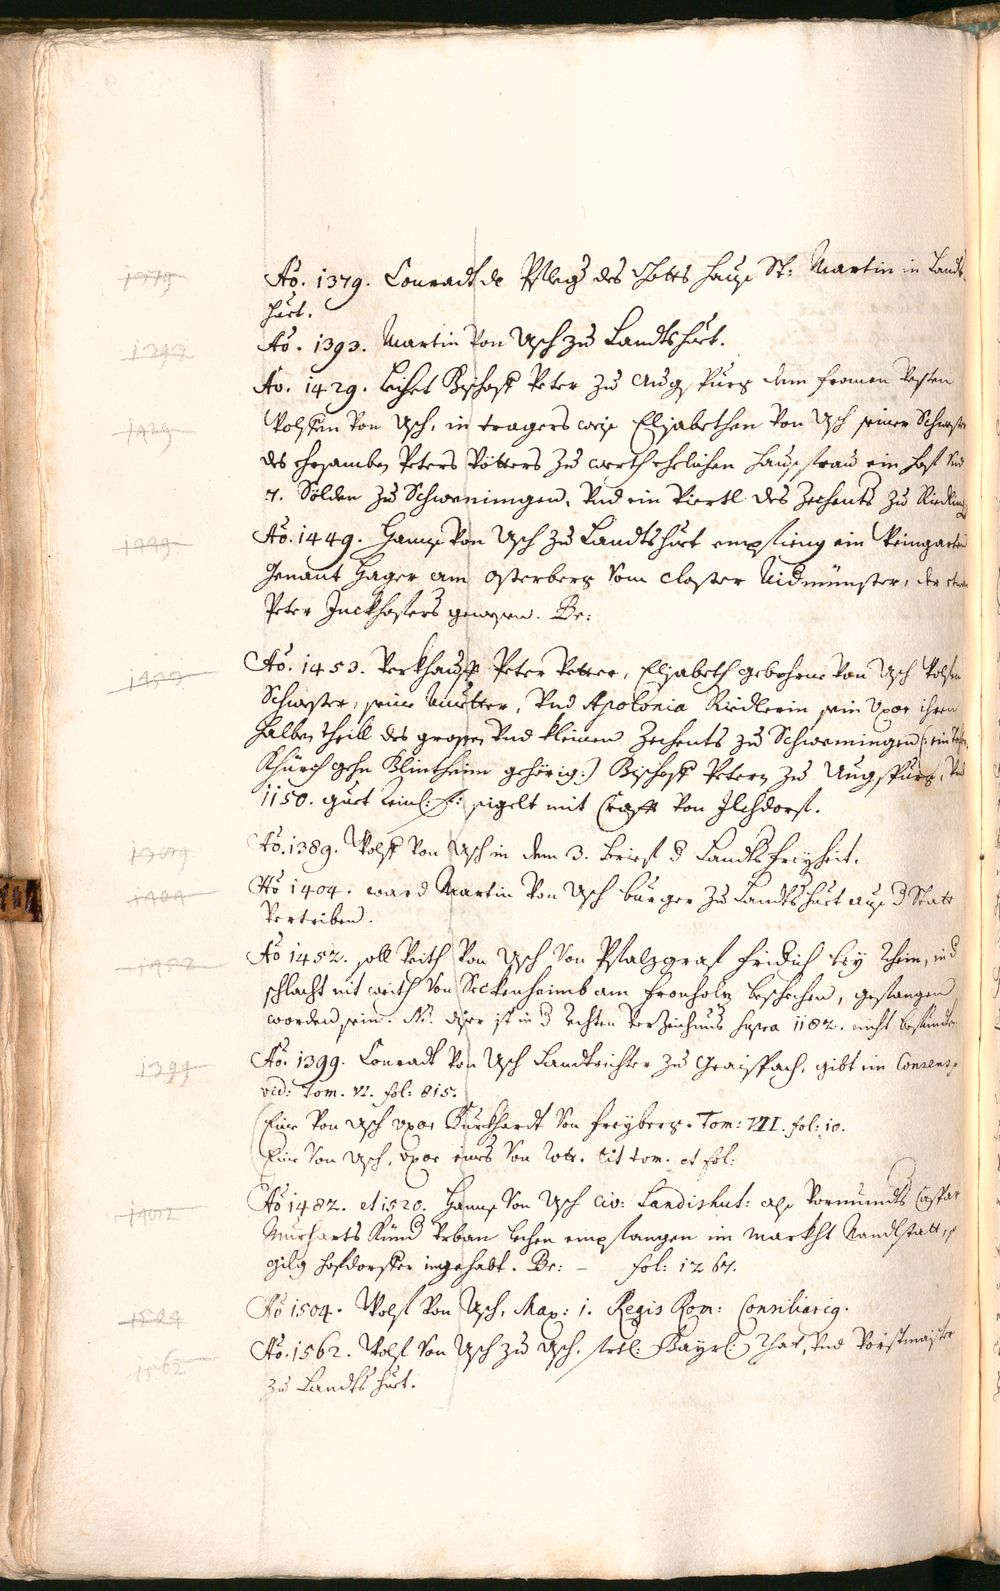 1379
Ao. 1379. Conradt de Pfleg des Gotts Hauß St: Martin in Landts
huet.
1393
Ao. 1393. Martin von Asch zu Landtshuet.
Ao. 1429. leihet Bischoff Peter zu Augspurg dem fromen Vesten
1429
Wolffen von Asch, in tragers weiß Elisabethen von Asch seiner Schwester
des ehrsamben Peters Vötters zu werth ehelichen haußfrau ein hoff und
7. Sölden zu Schweningen, und ein Viertl des Zechents zu Riedling
1449
Ao. 1449. Hannß von Asch zu Landtshuet empfieng ein Weingarten
genant Hager am osterberg vom closter Nidmünster, der etwan
Peter Inckhofers gewesen. Br:
1453
Ao. 1453. Verkhaufft Peter Vetter, Elisabeth gebohrne von Asch Wolfen
Schwester, seine Mutter, und Apolonia Riedlerin sein Uxor ihren
halben theill des grossen und kleinen Zechents zu Schwenningen
Khürch gehn Blintheim gehörig:) Bischoff Petern zu Augspurg, umb
1150. guet Reinl: f: sigelt mit von Ilchdorf.
1389
Ao. 1389. Wolff von Asch in dem 3. brieff d Landts freyheit.
1404
Ao 1404. ward Martin von Asch burger zu Landtshuet auß d Statt
vertriben.
1452
Ao 1452. soll Veith von Asch von Pfalzgraf fridich bey Rhein, in d
schlacht nit weith von Seckenheimb am fronholz beschechen, gefangen
worden sein. N: diser ist in d rechten Verzeichnus supra 1182. nicht befindt
1399
Ao. 1399. Conradt von Asch Landtrichter zu Graispach, gibt im Consens,
vid: Tom. VI. fol: 815.
Eine von Asch uxor Burkhardt von freyberg. Tom: VII. fol: 10.
Eine von Asch, uxor eines von Rotz. tit tom. et fol:
1482
Ao 1482. et 1520. Hannß von Asch civ: Landishut: alß Vormundts Caspar
Murharts Kind Urban lechen empfangen im Markht Nandlstatt, so
gilg hofdorffer ingehabt. Br: – fol: 1267.
1504
Ao 1504. Wolf von Asch, Max: 1. Regis Rom: Consiliarig.
1562
Ao. 1562. Wolf von Asch zu Asch, frtl: Bayrl: Rhat, und Vorstmaister
zu Landtshuet.